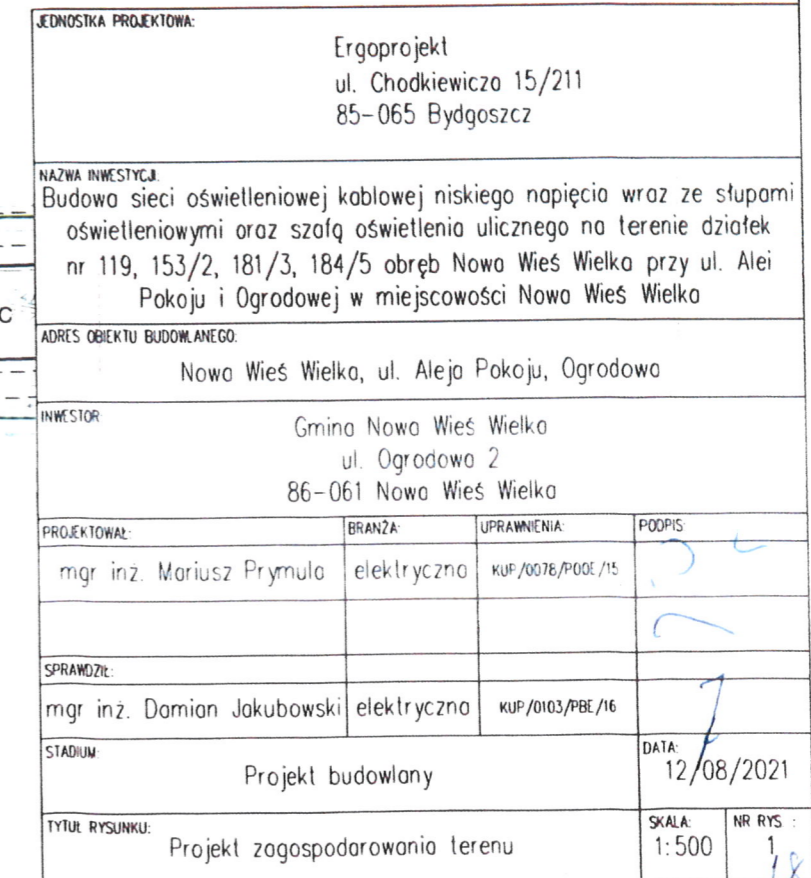 JEDNOSTKA PROJEKTOWA:
Ergoprojekt
ul. Chodkiewicza 15/211
85-065 Bydgoszcz
NAZWA INWESTYCJI:
Budowa sieci oświetleniowej kablowej niskiego napięcia wraz ze słupami
oświetleniowymi oraz szafą oświetlenia ulicznego na terenie działek
nr 119, 153/2, 181/3, 184/5 obręb Nowa Wieś Wielka przy ul. Alei
Pokoju i Ogrodowej w miejscowości Nowa Wieś Wielka
C
ADRES OBIEKTU BUDOWLANEGO:
Nowa Wieś Wielka, ul. Aleja Pokoju, Ogrodowa
INWESTOR
Gmina Nowa Wieś Wielka
ul. Ogrodowa 2
86-061 Nowa Wieś Wielka
PROJEKTOWAŁ: BRANŻA: UPRAWNIENIA: PODPIS:
mgr inż. Mariusz Prymula elektryczna KUP/0078/POOE/15
SPRAWDZIŁ:
mgr inż. Damian Jakubowski elektryczna KUP/0103/PBE/16
STADIUM: DATA:
Projekt budowlany 12/08/2021
TYTUŁ RYSUNKU: SKALA: NR RYS :
Projekt zagospodarowania terenu 1:500 1
18